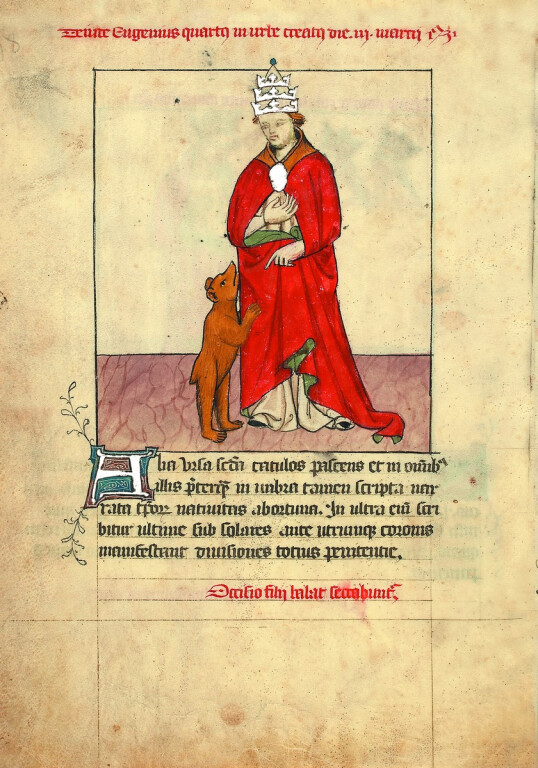 Eugenius quartus in urbe creatus die. iii. marcii
Alia Ursa secūda catulos pascens et in omnibꝰ
illis preterqꝫ in umbra tamen scripta nar
rata tpore nativitas abortiua. In ultra eiꝰ scri
bitur ultime sub solares ante utriusqꝫ coronis
manifestant divisiones totius penitentie.
Occisio filij balat